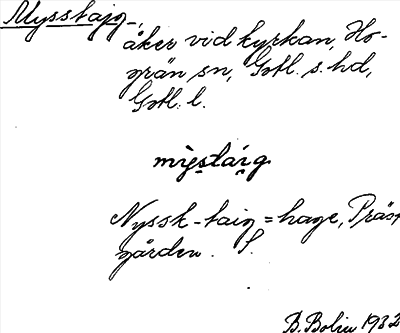 Mysstajg-,
åker vid kyrkan, Ho-
grän sn, Gotl. s. hd,
Gotl. l.
mìẹstáịg
Nyssk-taig = hage, Präst
gården. S.
B. Bolin 1932